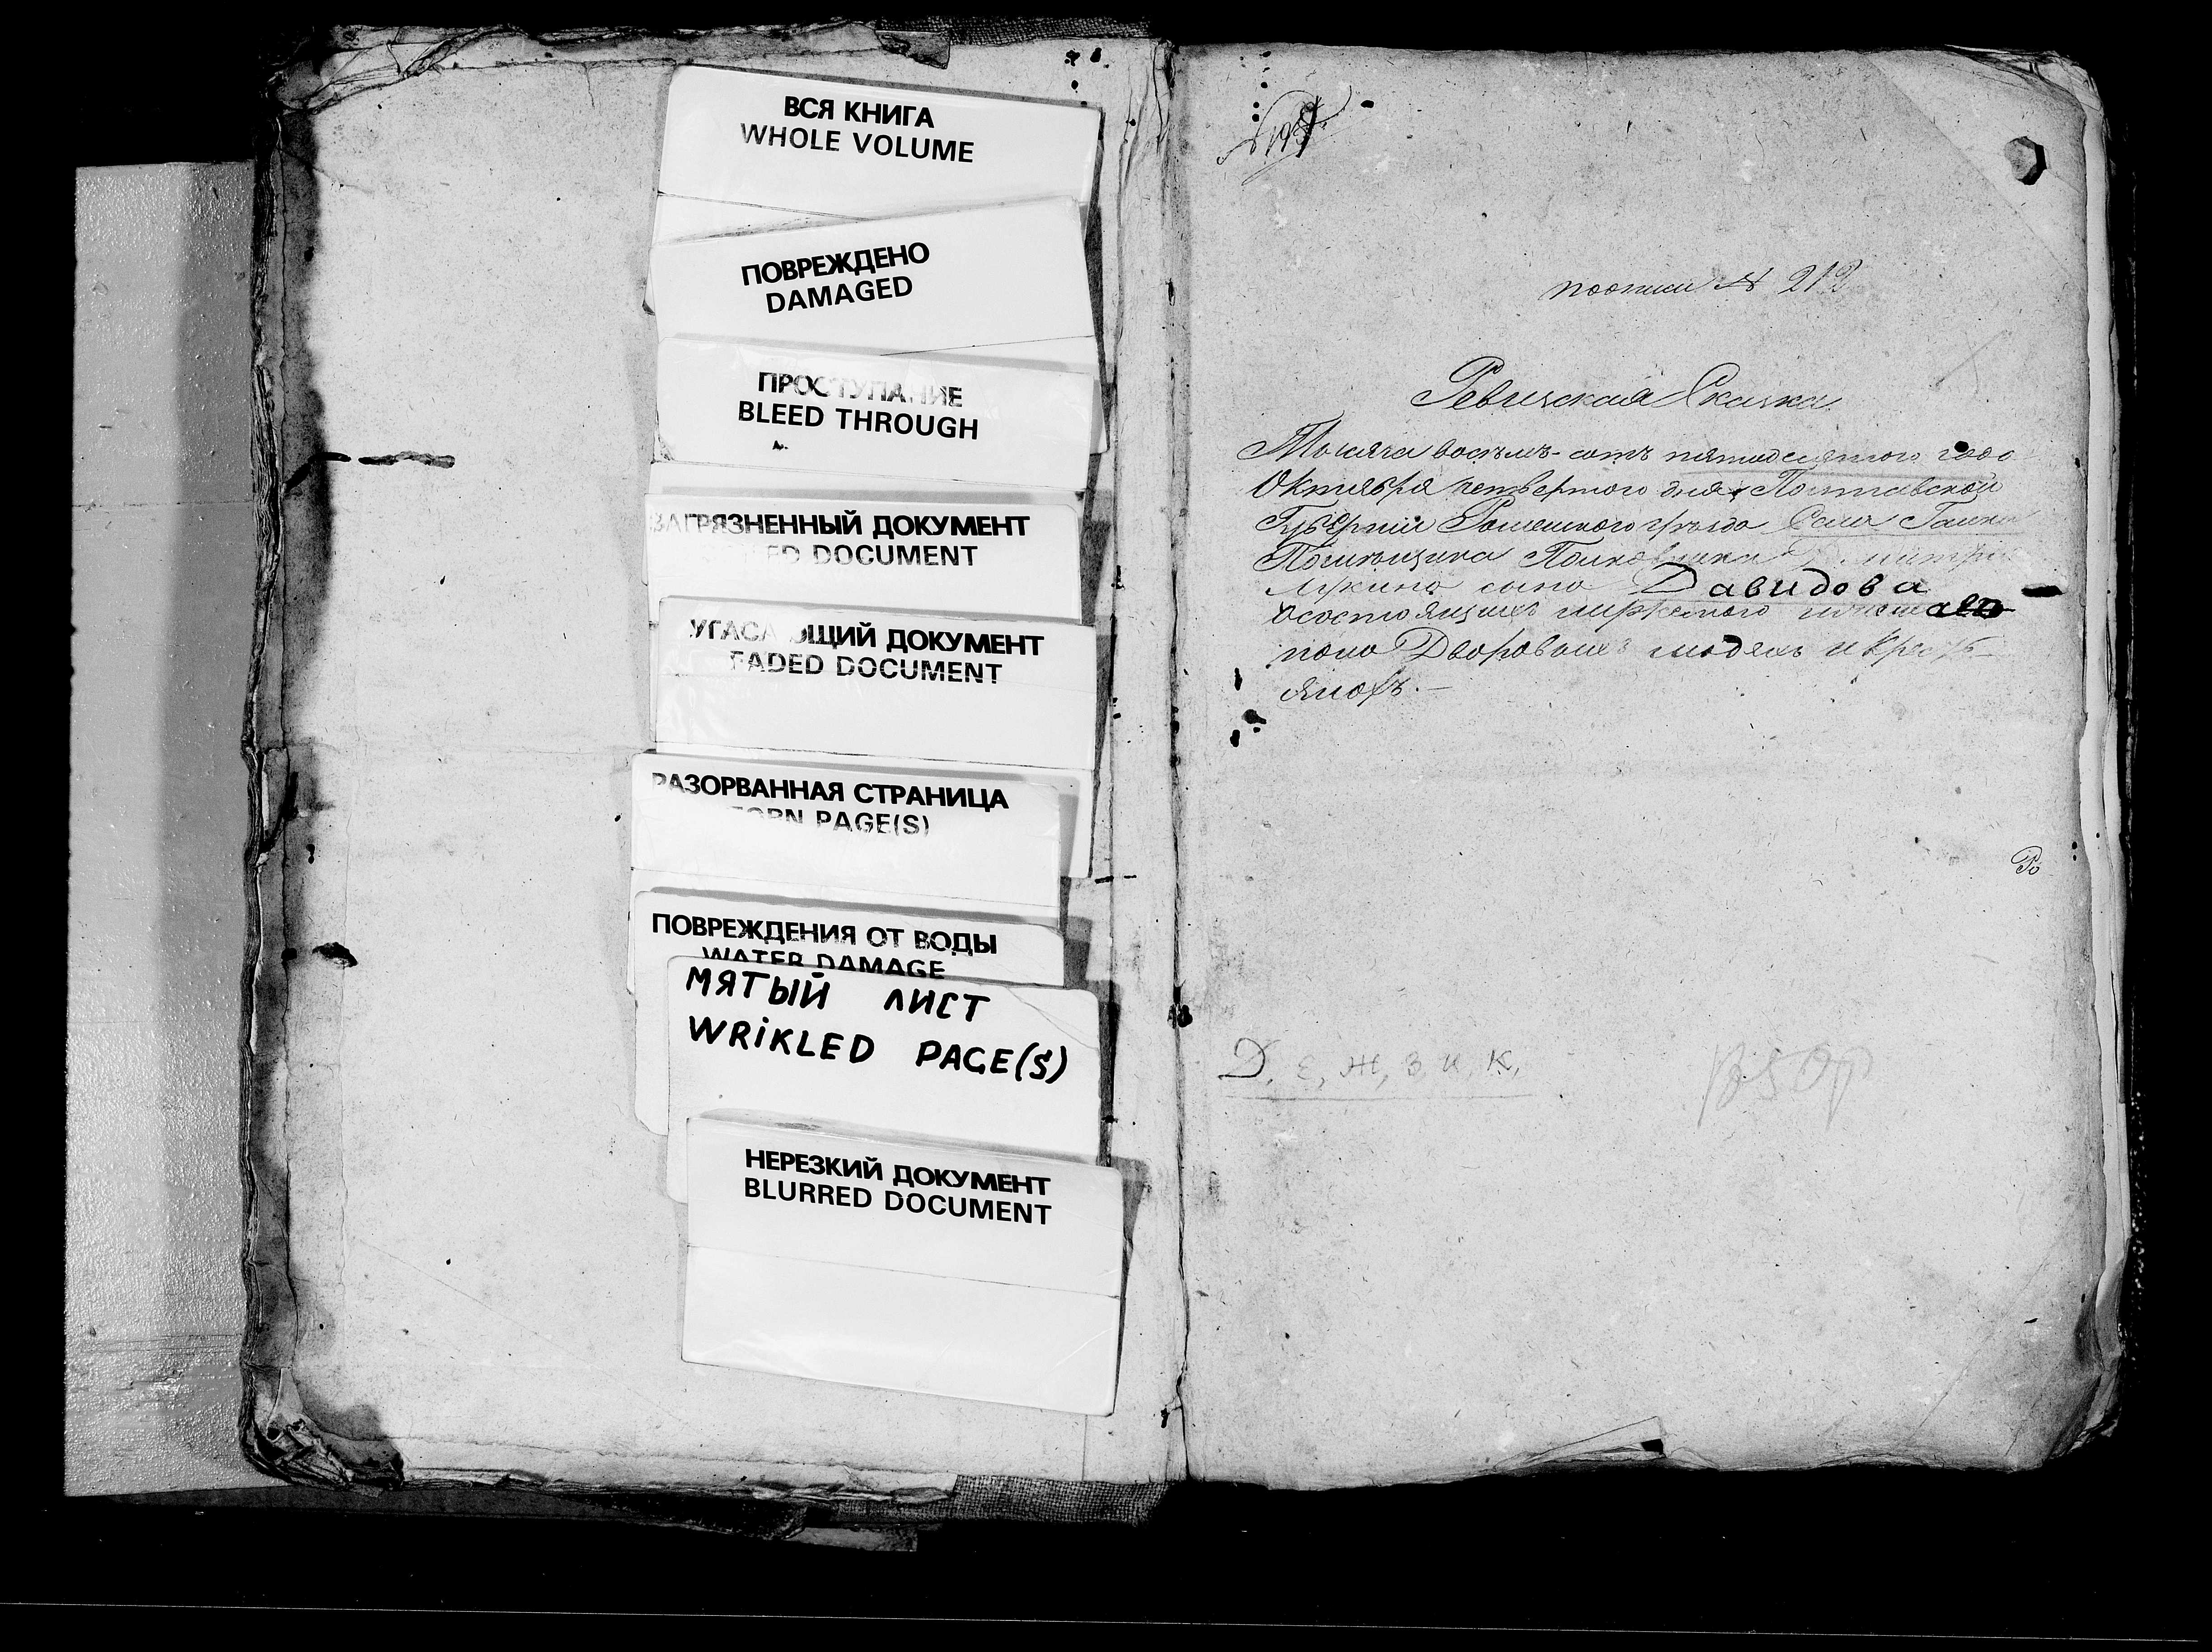 ВСЯ КНИГА
WHOLE VOLUME
ПОВРЕЖДЕНО
DAMAGED
ПРОСТУПАНИЕ
BLEED THROUGH
ЗАГРЯЗНЕННЫЙ ДОКУМЕНТ
DOCUMENT
УГАСАЮЩИЙ ДОКУМЕНТ
FADED DOCUMENT
РАЗОРВАННАЯ СТРАНИЦА
TORN PAGE(S)
ПОВРЕЖДЕНИЯ ОТ ВОДЫ
WATER DAMAGE
МЯТЫЙ ЛИСТ
WRiKLED PAGE(S)
НЕРЕЗКИЙ ДОКУМЕНТ
BLURRED DOCUMENT
№ 212
Ревизская Сказка
Тысяча восемь-сотъ пятидесятого года
Октября четвертого дня Полтавской
Губерніи Роменского уѣзда Села
Помѣщика Полковника Дмитрія
сына Давидова
о состоящихъ мужеского
пола Дворовыхъ людехъ и кресть-
янохъ.—
Ро
Д, Е, Ж, З, И, К,